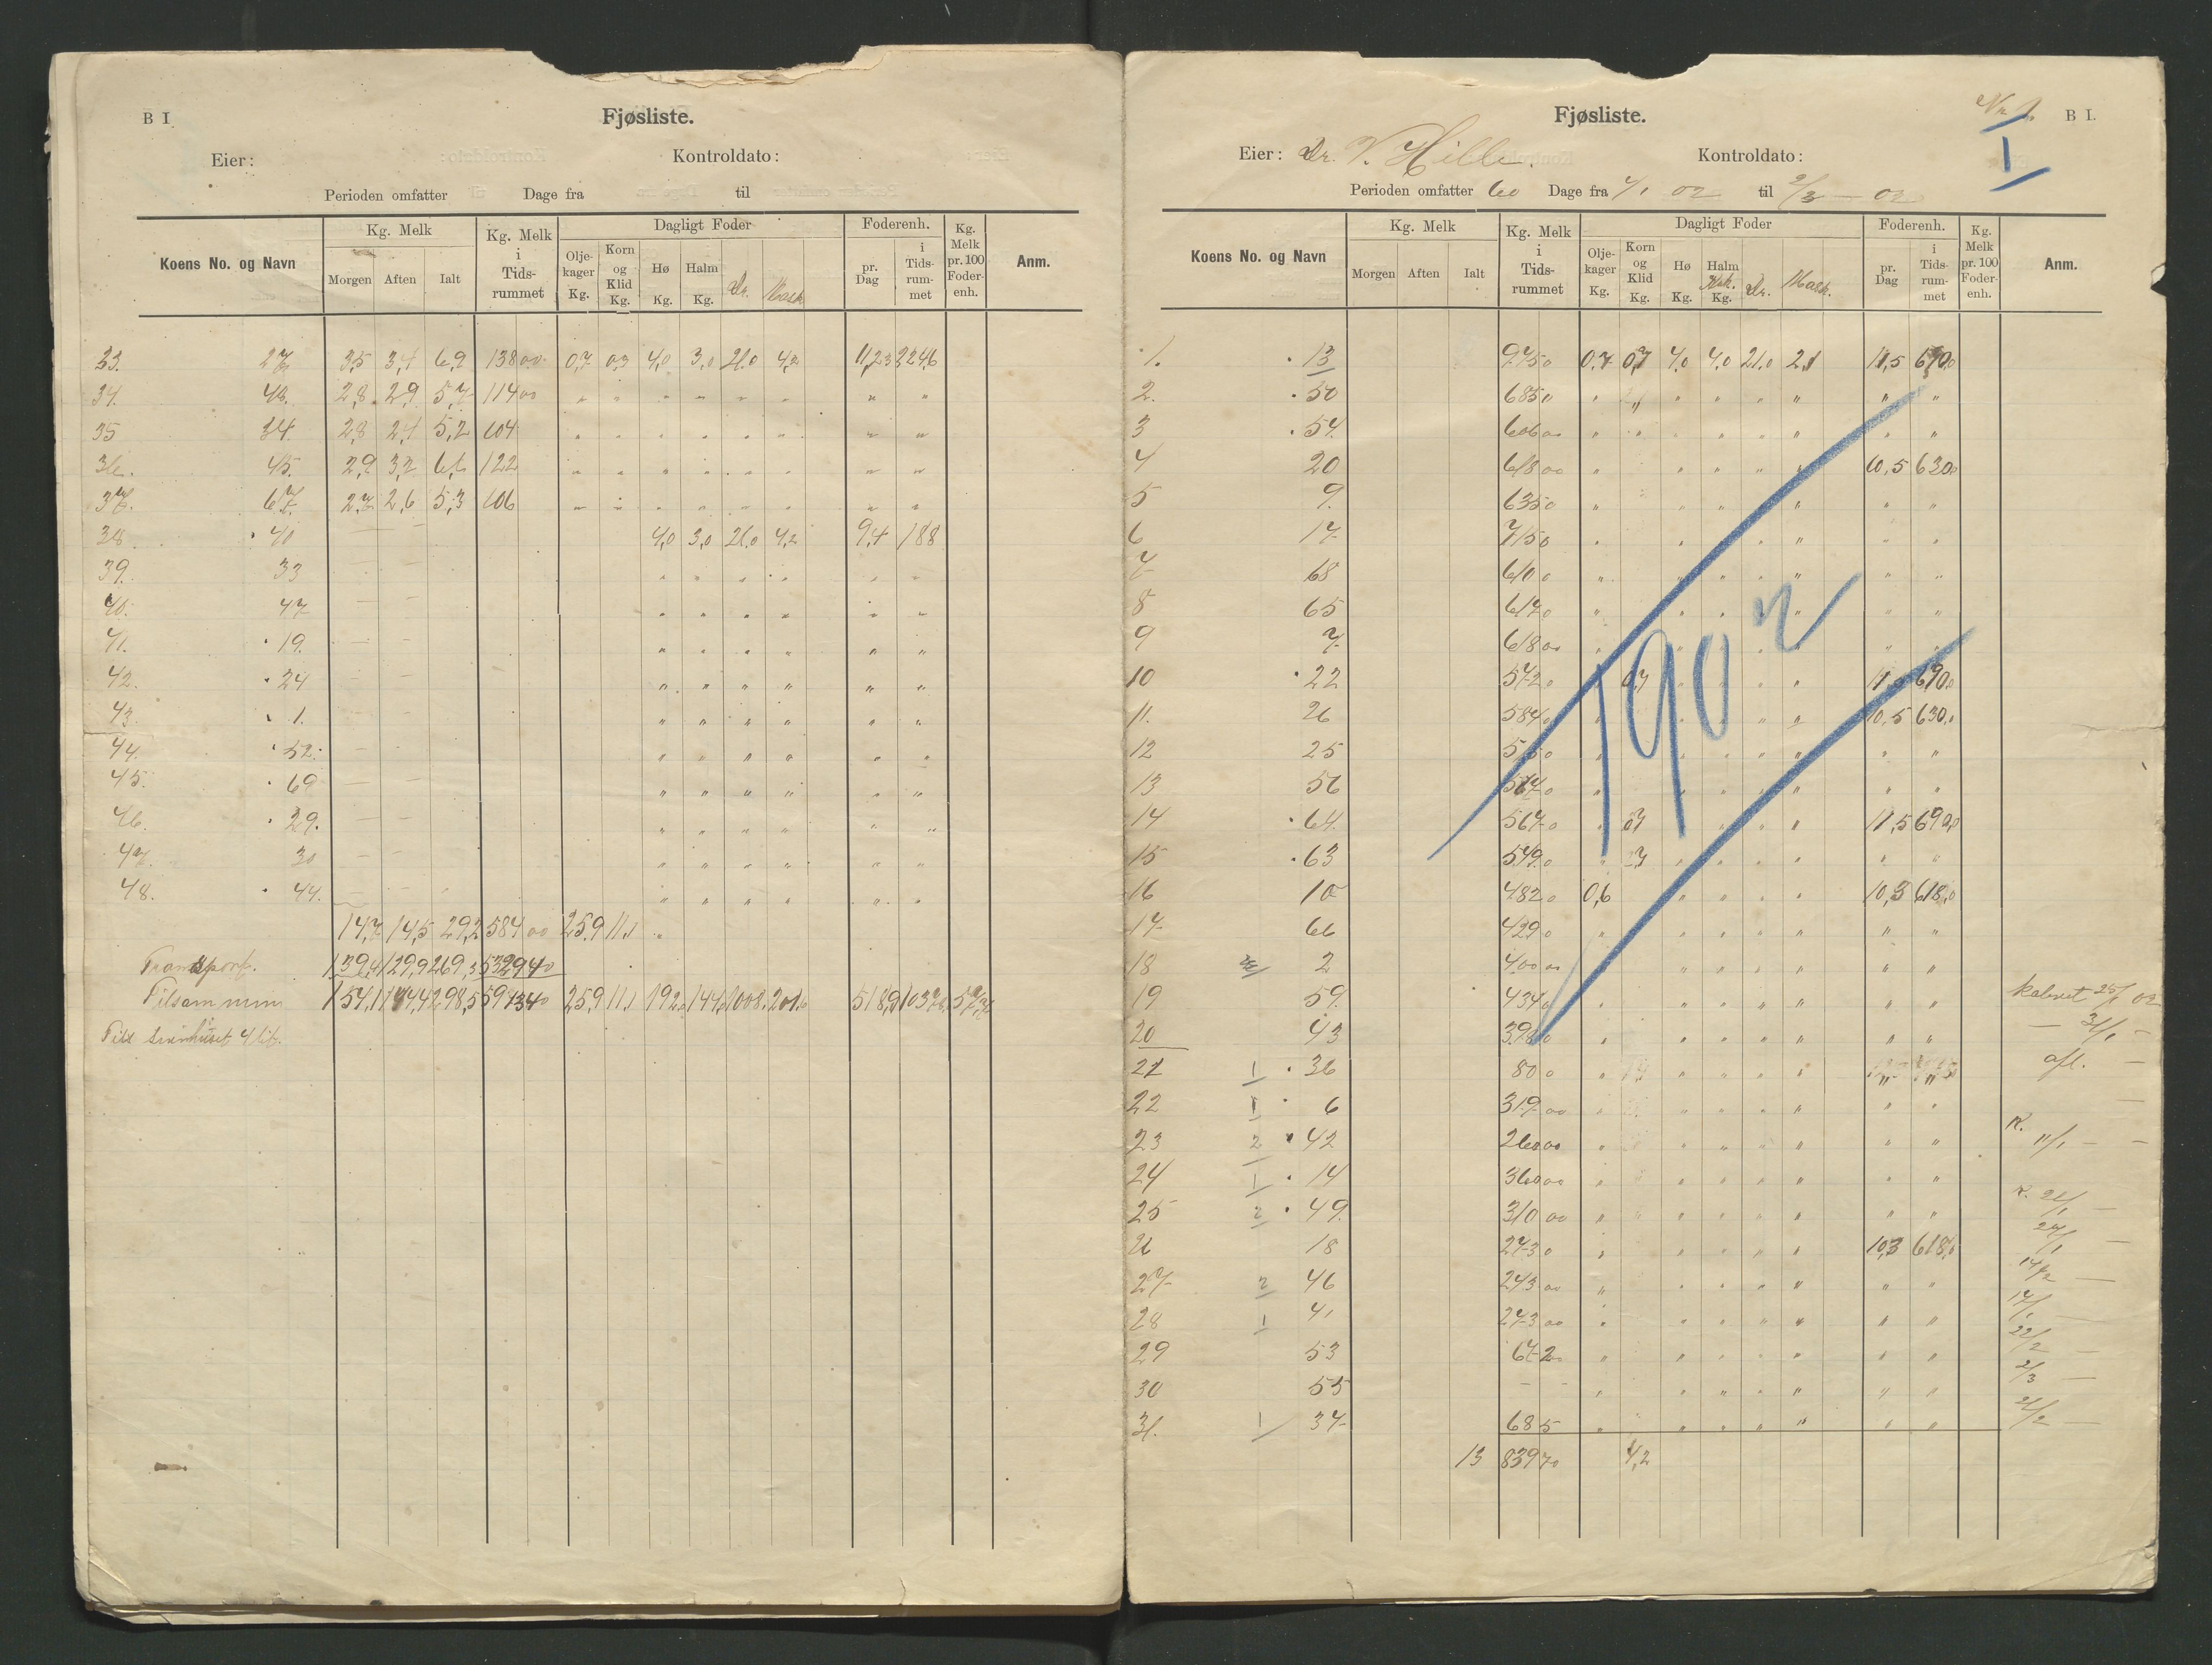 B I
Fjøsliste.
Eier:
Kontroldato:
Perioden omfatter Dage fra til
Koens No. og Navn
Kg. Melk
Morgen Aften Ialt
Kg. Melk i Tids-rummet
Dagligt Foder
Olje-kager Kg. Korn og Klid Kg. Hø Kg. Halm Kg. Dr. Mask
Foderenh.
pr. Dag i Tids-rum-met
Kg. Melk pr. 100 Foder-enh.
Anm.
33. 27 3,5 3,4 6,9 138 00 0,7 0,3 4,0 3,0 21,0 4,2 11,23 224,6
34. 48. 2,8 2,9 5,7 114 00 " " " " " " " "
35 34. 2,8 2,4 5,2 104 " " " " " " " "
36. 45. 2,9 3,2 6,1 122 " " " " " " " "
37. 67. 2,7 2,6 5,3 106 " " " " " " " "
38. 40 — — 4,0 3,0 21,0 4,2 9,4 188
39. 33 — — " " " " " "
40. 47 — — " " " " " "
41. 19. — — " " " " " "
42. 24 — — " " " " " "
43. 1. — — " " " " " "
44. 52. — — " " " " " "
45. 69 — — " " " " " "
46. 29. — — " " " " " "
47. 30 — — " " " " " "
48. 44. — — " " " " " "
14,7 14,5 29,2 584 00 25,9 11,1
Transport. 139,4 129,9 269,3 5329 40
Tilsammen 154,1 144,4 298,5 5913 40 25,9 11,1 192,0 144,0 1008,0 201,6 518,9 1037
4 lit.
Nr 1.
B I.
I
Fjøsliste.
Eier: Dr. V. Hille.
Kontroldato:
Perioden omfatter 60 Dage fra 4/1 02 til 2/3 — 02
Koens No. og Navn
Kg. Melk
Morgen Aften Ialt
Kg. Melk i Tids-rummet
Dagligt Foder
Olje-kager Kg. Korn og Klid Kg. Hø Kg. Halm Kg. Dr. Mask.
Foderenh.
pr. Dag i Tids-rum-met
Kg. Melk pr. 100 Foder-enh.
Anm.
1. 13 975 0 0,7 0,7 4,0 4,0 21,0 2,1 11,5 690,0
2. 50 685 " " " " " " " " "
3 54. 606 00 " " " " " " " "
4 20 618 00 " " " " " 10,5 630,0
5 9. 635 0 " " " "
6 17 715 0 " " " " " "
7 68 610 0 " " " " " " "
8 65 617 0 " " " " "
9 7 618 00 " " "
10 22 572 0 0,7 " " 11,5 690,0
11. 26 584 0 " " " 10,5 630,0
12 25 515 0 " " " "
13 56 567 0 " " " " "
14 64. 567 0 " 0,7 " " " 11,5 690,0
15 63 549 0 " " " " " " "
16 10 482 0 0,6 " " " " 10,3 618,0
17 66 429 0 " " " " " " "
18 2 400 00 " " " " " " "
19 59. 434 0 " " " " " " " kalvet 25/1 02
20 43 398 0 " " " " " " " — 31/1 —
21 1 36 80 0 " " " " " " " " afl. —
22 1 6 319 00 " " " " " " " —
23 2 42 260 00 " " " " " " " K. 11/1 — —
24 1 14 360 00 " " " " " " "
25 2 49. 310 00 " " " " " " " K. 21/1 —
26 18 273 0 " " " " " 10,3 618,0 24/1 —
27 2 46 243 00 " " " " " " " 14/2 —
28 1 41 273 00 " " " " " " " 17/1 —
29 53 67 2 " " " " " " " 22/2 —
30 55 — — " " " " " " " 2/3 —
31. 1 37 68 5 " " " " " " " 21/2 —
13 839 70 4,2
1902